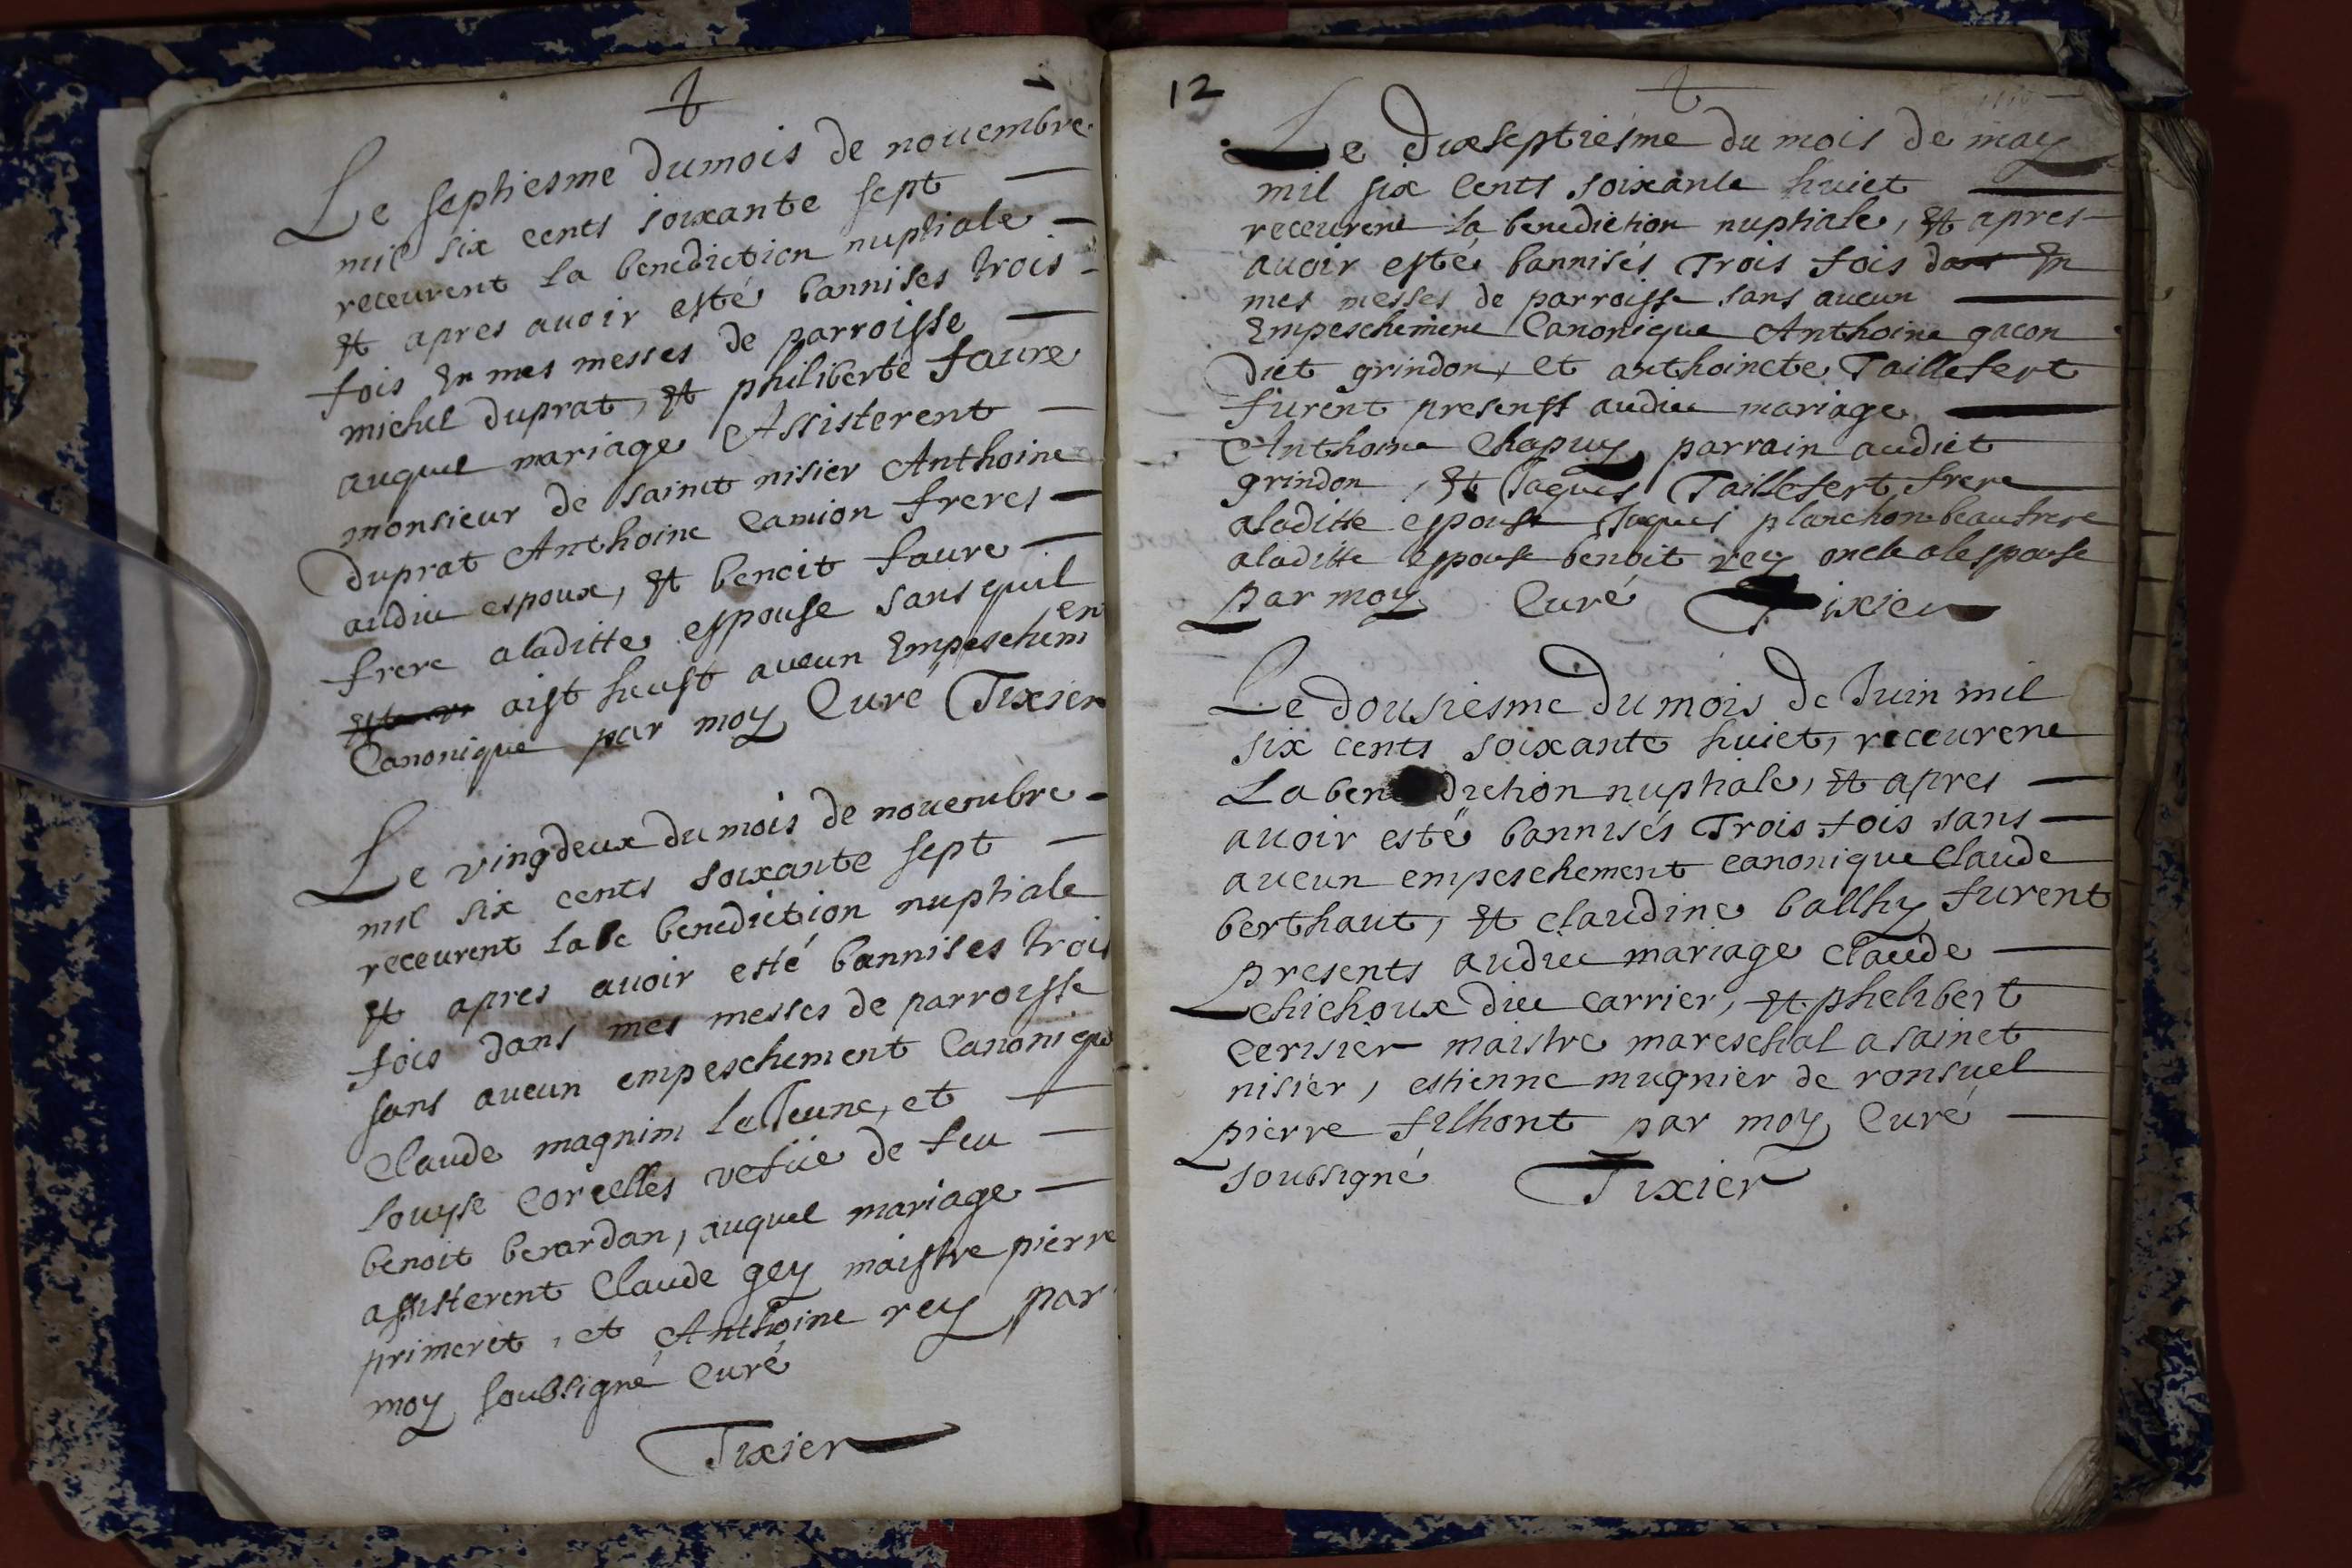 Le septiesme dumois de nouembre
mil six cents soixante sept
receurent la benediction nuptiale
Et apres auoir esté bannises trois
fois En mes messes de parroisse
michel duprat, Et philiberte faure
auquel mariage Assisterent
monsieur de sainct nisier Anthoine
duprat Anthoine Camion freres
audict espoux, Et benoit faure
frere aladitte espouse sans quil
aist heust aucun Empeschem en
Canonique par moy Curé Tixier
Le vingdeux du mois de nouembre
mil six cents soixante sept
receurent la be benediction nuptiale
Et apres auoir esté bannises trois
fois dans mes messes de parroisse
sans aucun empeschement Canonique
Claude magnin le Jeune, et
Louyse Corcelles vefüe de feu
benoit berardan, auquel mariage
assisterent Claude gey maistre pierre
primeret, et Anthoine rey par
moy soubsigné Curé
Tixier
12
Le dixseptiésme du mois de may
mil six Cents soixante huict
receurent la benediction nuptiale, Et apres
auoir esté bannisés Trois fois dans En
mes messes de parroisse sans aucun
Empeschement Canonique Anthoine gacon
dict grindon, et anthoincte Taillefert
furent presents audict mariage
Anthoine Chapuy parrain audict
grindon, Et Jaques Taillefert frere
aladitte espouse Jaques planchon beaufrere
aladitte espouse benoit rey oncle alespouse
par moy Curé Tixier
Le dousiesme du mois de Juin mil
six cents soixante huict, receurent
La benediction nuptiale, Et apres
auoir esté bannisés Trois fois sans
aucun empeschement canonique Claude
berthaut, Et claudine ballhy furent
presents audict mariage claude
chichoux dict carrier, Et phelibert
cerisier maistre mareschal a sainct
nisier, estienne mugnier de ronsuel
pierre filhont par moy Curé
soubsigné Tixier